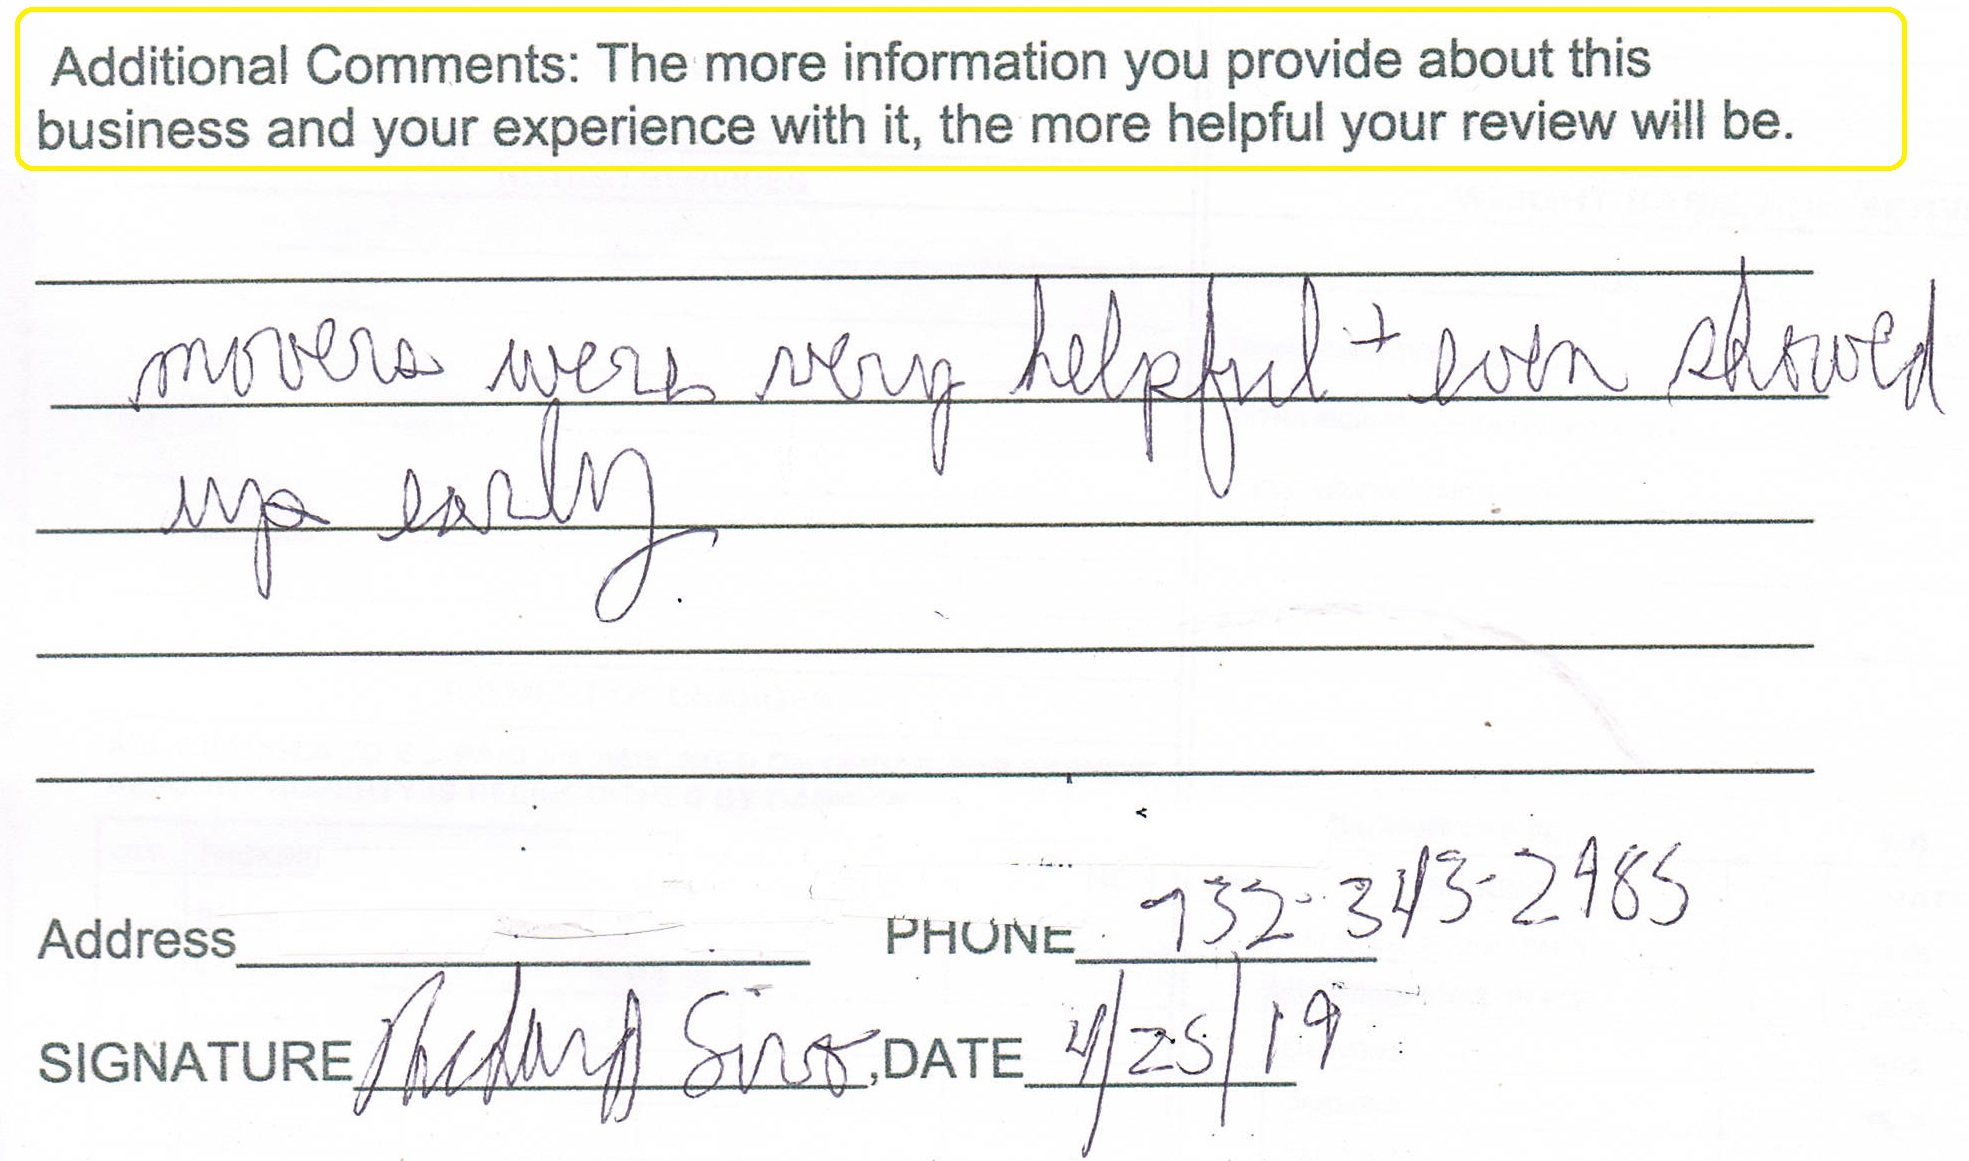 Additional Comments: The more information you provide about this
business and your experience with it, the more helpful your review will be.
movers were very helpful + even showed
up early.
Address
PHONE 732-343-2985
SIGNATURE Richard Siro, DATE 4/25/19